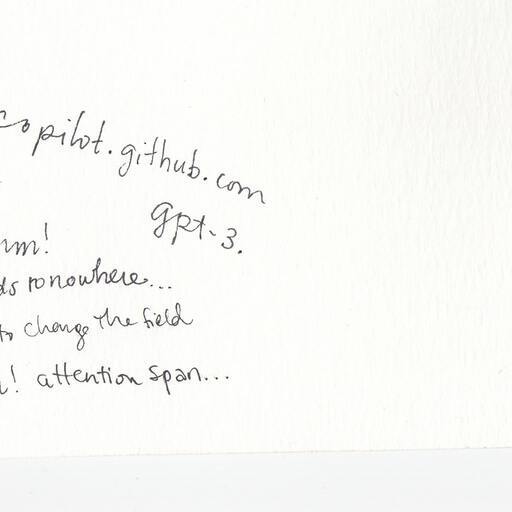 copilot.github.com
gpt-3.
um!
ds to nowhere...
to change the field
! attention span...